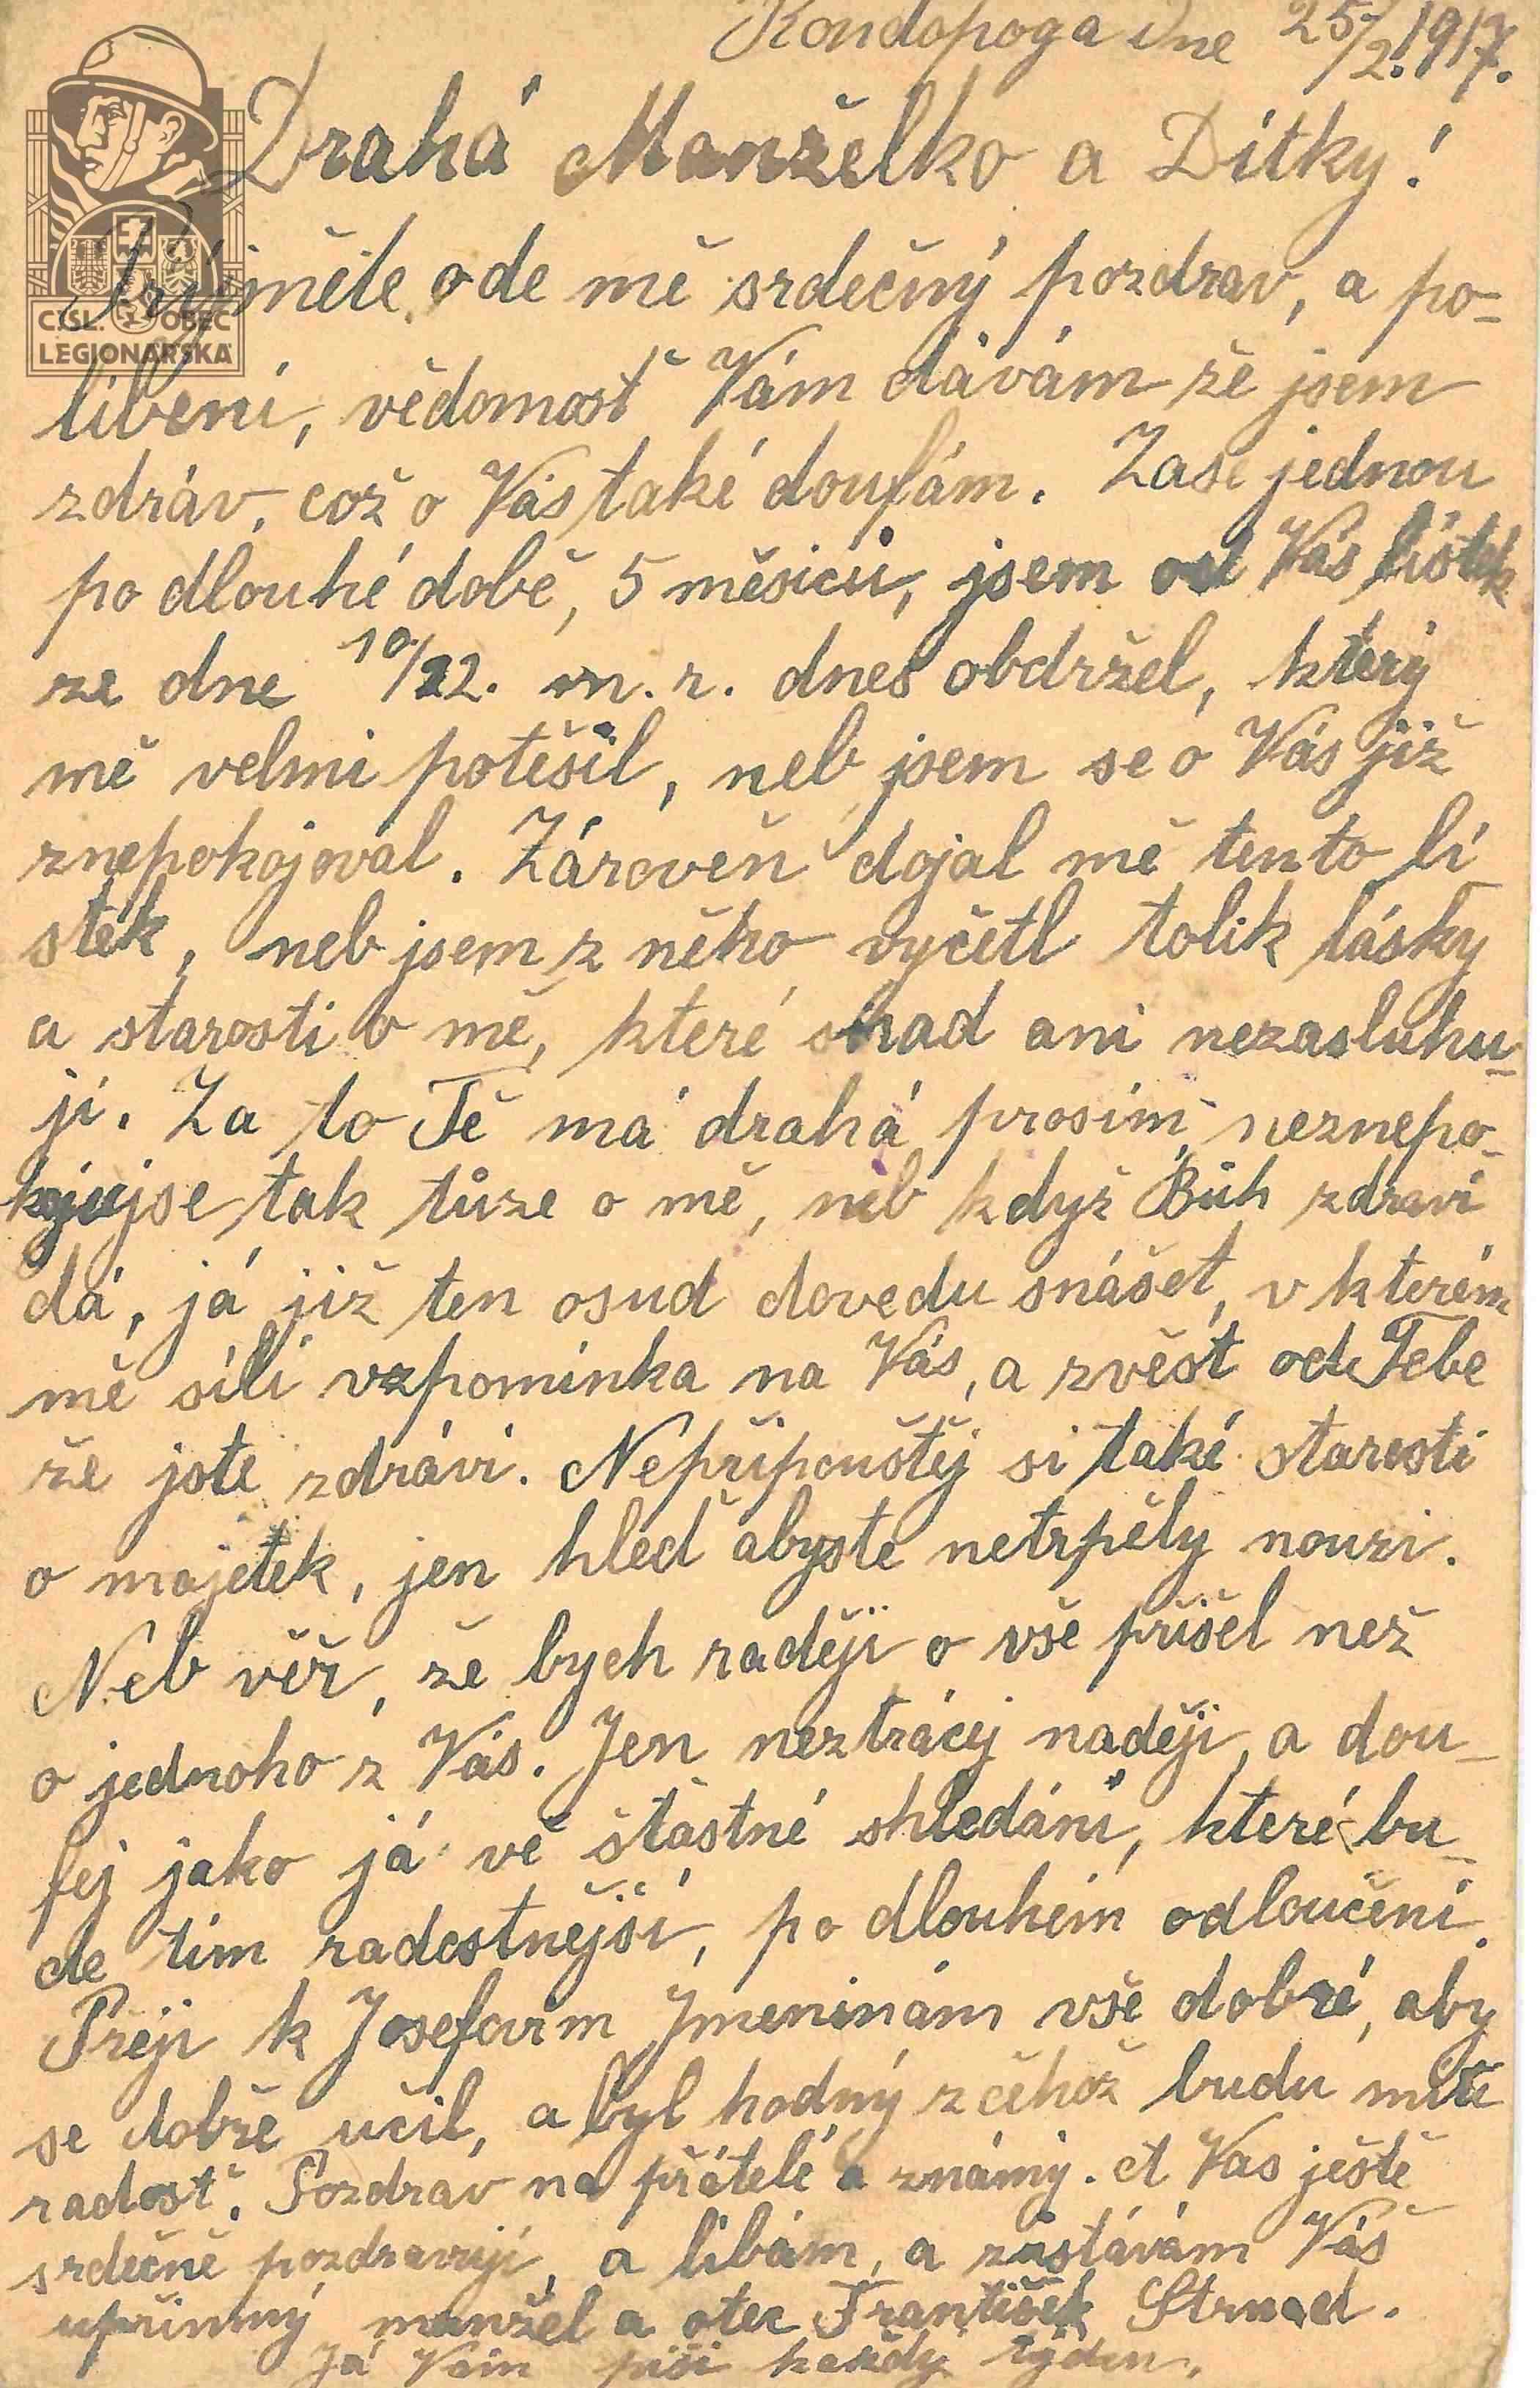 Kondopoga dne 25/2. 1917.
Drahá Manželko a Dítky!
Přijměte ode mě srdečný pozdrav, a po-
líbení, vědomosť Vám dávám že jsem
zdráv, což o Vás také doufám. Zase jednou
po dlouhé době, 5 měsíců, jsem od Vás lístek
ze dne 10/12. m. r. dnes obdržel, který
mě velmi potěšil, neb jsem se o Vás již
znepokojoval. Zároveň dojal mě tento lí
stek, neb jsem z něho vyčetl tolik lásky
a starosti o mě, které snad ani nezasluhu-
ji. Za to Tě má drahá prosím, neznepo-
kojuj se tak tůze o mě, neb když Bůh zdraví
dá, já již ten osud dovedu snášet, v kterém
mě sílí vzpomínka na Vás, a zvěst od Tebe
že jste zdrávi. Nepřipouštěj si také starosti
o majetek, jen hleď abyste netrpěly nouzi.
Neb věř, že bych raději o vše přišel než
o jednoho z Vás. Jen neztrácej naději, a dou-
fej jako já ve štastné shledání, které bu-
de tím radostnější, po dlouhém odloučení.
Přeji k Josefovim Jmeninám vše dobré, aby
se dobře učil, a byl hodný z čehož budu míti
radosť. Pozdrav na přátelé a známý. A Vás ještě
srdečně pozdravuji, a líbám, a zůstávám Váš
upřímný manžel a otec František Strnad.
Já Vám píši každý týden.
ČSL. OBEC
LEGIONÁŘSKÁ